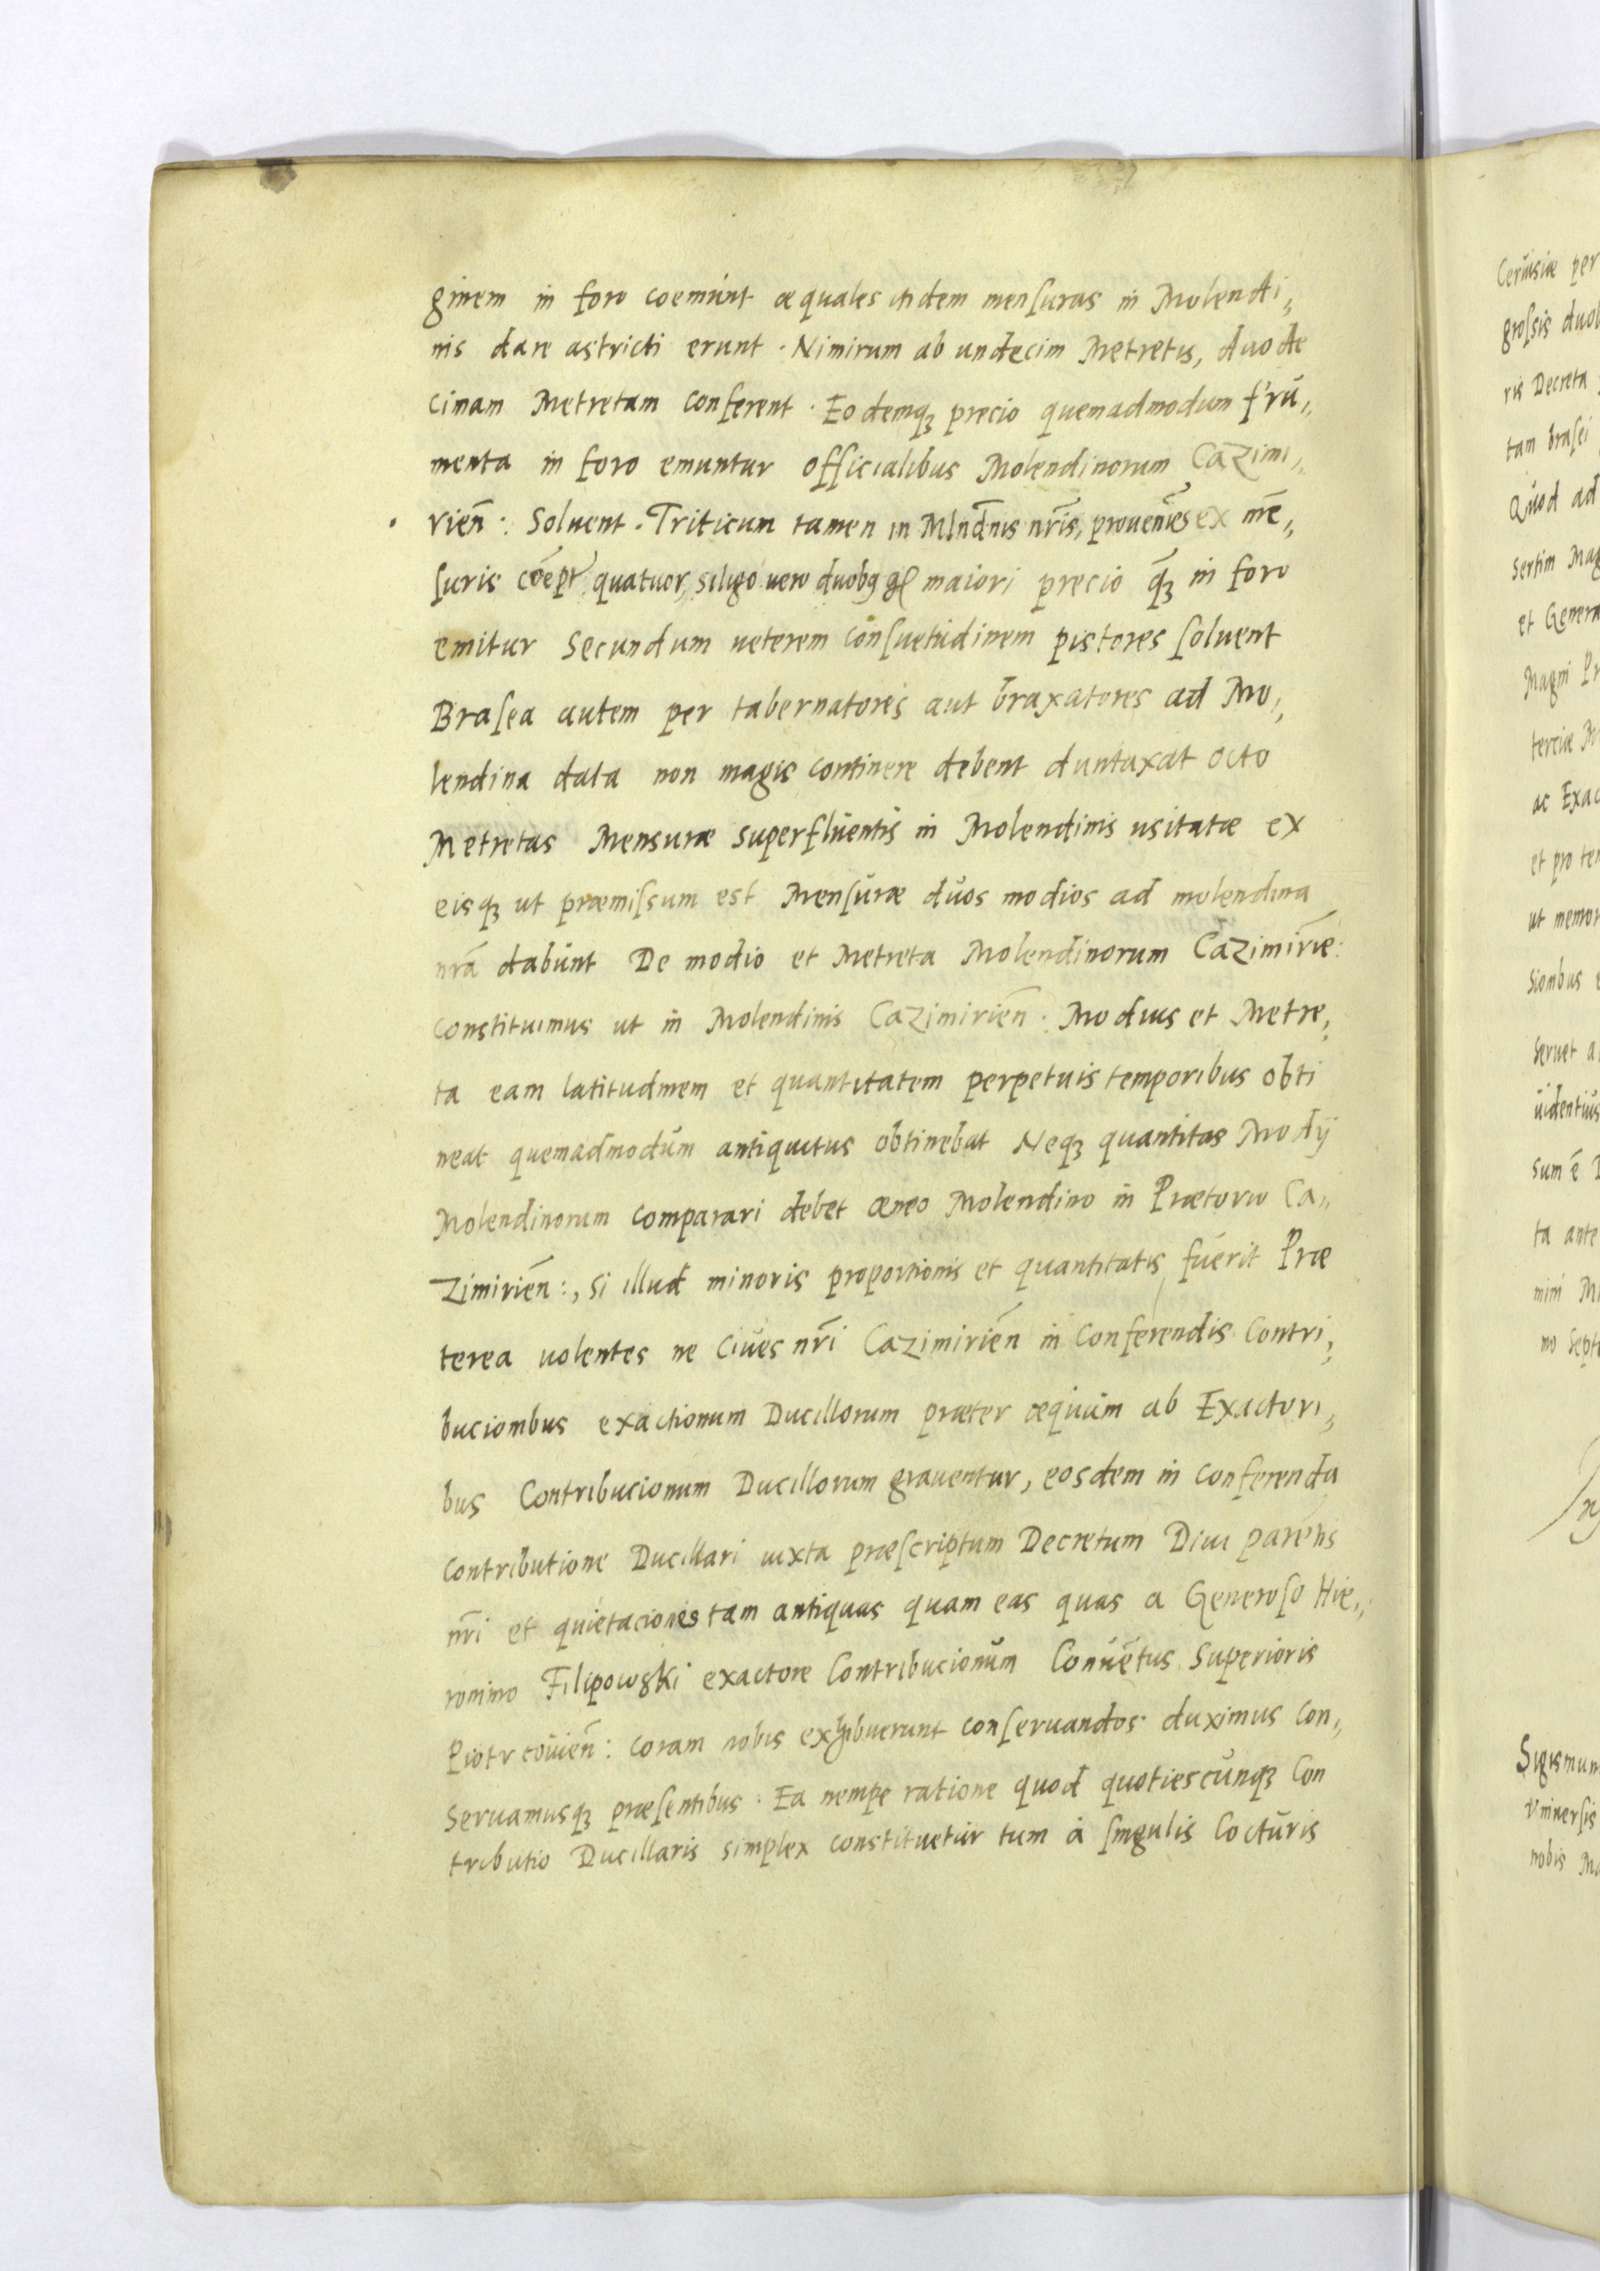 ginem in foro coemunt æquales itidem menſuras in Molendi,,
nis dare astricti erunt. Nimirum ab undecim Metretis, duode
cimam Metretam conferent. Eodemqꝫ precio quemadmodum frŭ,,
menta in foro emuntur officialibus Molendinorum Cazimi,,
rien̄: Soluent. Triticum tamen in Mlnd̄nis nr̄is, prouenies ex me,,
ſuris quatuor, siligo uero maiori precio qꝫ in foro
emitur Secundum ueterem conſuetudinem pistores ſoluent
Braſea autem per tabernatores aut braxatores ad Mo,,
lendina data non magis continere debent duntaxat octo
Metretas Mensuræ superfluentis in Molendinis usitatæ ex
eisqꝫ ut præmiſsum est Menſuræ duos modios ad molendina
nr̄a dabunt De modio et Metreta Molendinorum Cazimirie:
constituimus ut in Molendinis Cazimirien̄. Modius et Metre,,
ta eam latitudinem et quantitatem perpetuis temporibus obti
neat quemadmodŭm antiquitus obtinebat Neqꝫ quantitas Modij
Molendinorum comparari debet æneo Molendino in Prætorio Ca,,
zimirien̄:, si illud minoris proportionis et quantitatis fuerit Præ
terea uolentes ne Ciues nr̄i Cazimirien̄ in Conferendis Contri,,
bucionibus exactionum Ducillorum præter æquum ab Exactori,,
bus Contribucionum Ducillorum grauentur, eosdem in conferenda
contributione Ducillari iuxta præſcriptum Decretum Diui parentis
nr̄i et quietaciones tam antiquas quam eas quas a Generoſo Hie,,
ronimo Filipowski exactore Contribucionŭm Conuētus Superioris
Piotrcouien̄: coram nobis exhibuerunt conſeruandos duximus con,,
Seruamusqꝫ præſentibus. Ea nempe ratione quod quotiescunqꝫ Con
tributio Ducillaris simplex constituetur tum à ſingulis Cocturis
Ceruisiæ per
groſsis duob
ris Decreta
tam braſei
Quod ad
Sertim Mag
et Genera
Magni Pr
terciæ
ac Exac
et pro tem
ut memor
Sionibus
Seruet a
uidentius
Sum ē
ta ante
mini
mo Septi
Sigismun
Vniuerſis
nobis